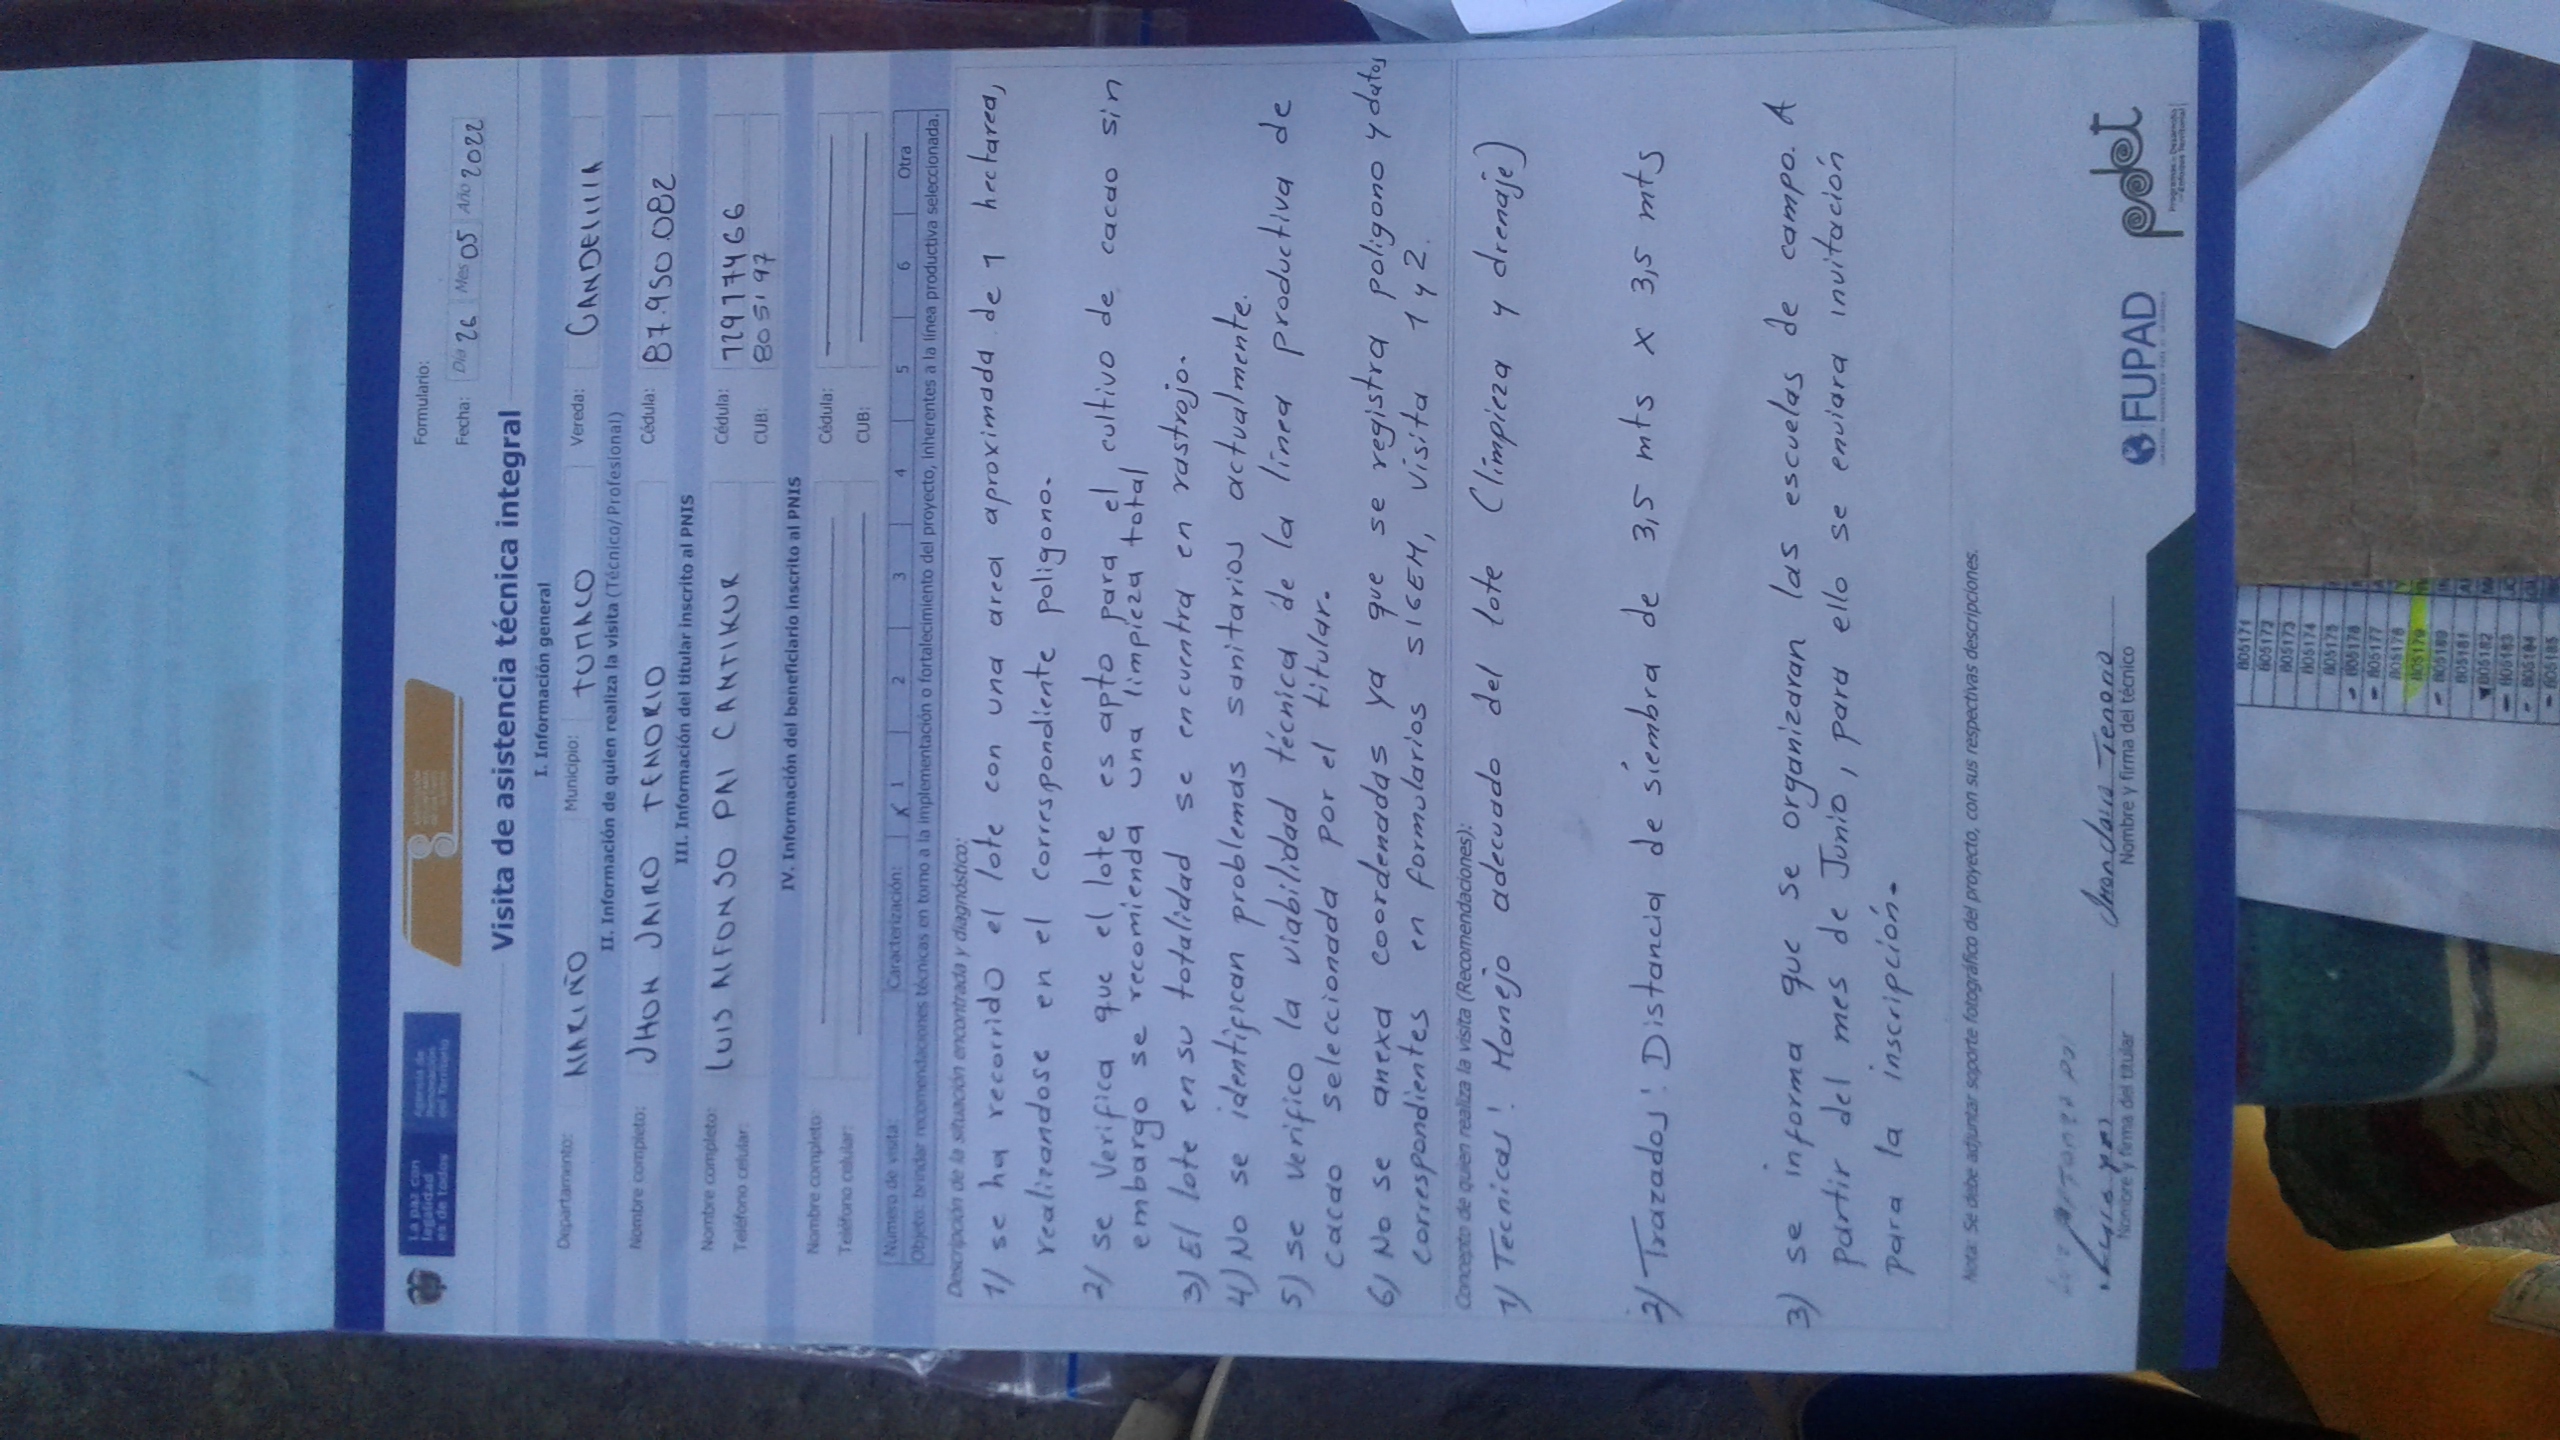 La paz con
legalidad
es de todos
Agencia de
Renovación
del Territorio
Formulario:
Fecha: Día 26 Mes 05 Año 2022
Visita de asistencia técnica integral
I. Información general
Departamento: NARIÑO Municipio: TUMACO Vereda: CANDELILLA
II. Información de quien realiza la visita (Técnico/Profesional)
Nombre completo: JHON JAIRO TENORIO Cédula: 87.950.082
III. Información del titular inscrito al PNIS
Nombre completo: LUIS ALFONSO PAI CANTIKUR Cédula: 729177466
Teléfono celular: CUB: 805197
IV. Información del beneficiario inscrito al PNIS
Nombre completo: Cédula:
Teléfono celular: CUB:
Número de visita: Caracterización: X 1 2 3 4 5 6 Otra
Objeto: brindar recomendaciones técnicas en torno a la implementación o fortalecimiento del proyecto, inherentes a la línea productiva seleccionada.
Descripción de la situación encontrada y diagnóstico:
1) se ha recorrido el lote con una area aproximada de 1 hectarea,
realizandose en el correspondiente poligono.
2) se Verifica que el lote es apto para el cultivo de cacao sin
embargo se recomienda una limpieza total
3) El lote en su totalidad se encuentra en rastrojo.
4) No se identifican problemas sanitarios actualmente.
5) se verifico la viabilidad técnica de la línea productiva de
cacao seleccionada por el titular.
6) No se anexa coordenadas ya que se registra poligono y datos
correspondientes en formularios SIGEM, visita 1 y 2.
Concepto de quien realiza la visita (Recomendaciones):
1) Tecnicas: Manejo adecuado del lote (limpieza y drenaje)
2) Trazados: Distancia de siembra de 3,5 mts x 3,5 mts
3) se informa que se organizaran las escuelas de campo. A
partir del mes de Junio, para ello se enviara invitación
para la inscripción.
Nota: Se debe adjuntar soporte fotográfico del proyecto, con sus respectivas descripciones.
Nombre y firma del titular
Nombre y firma del técnico
FUPAD
pdet
Programas de Desarrollo
con Enfoque Territorial
805171
805172
805173
805174
805175
805176
805177
805178
805179
805180
805181
805182
805183
805184
805185